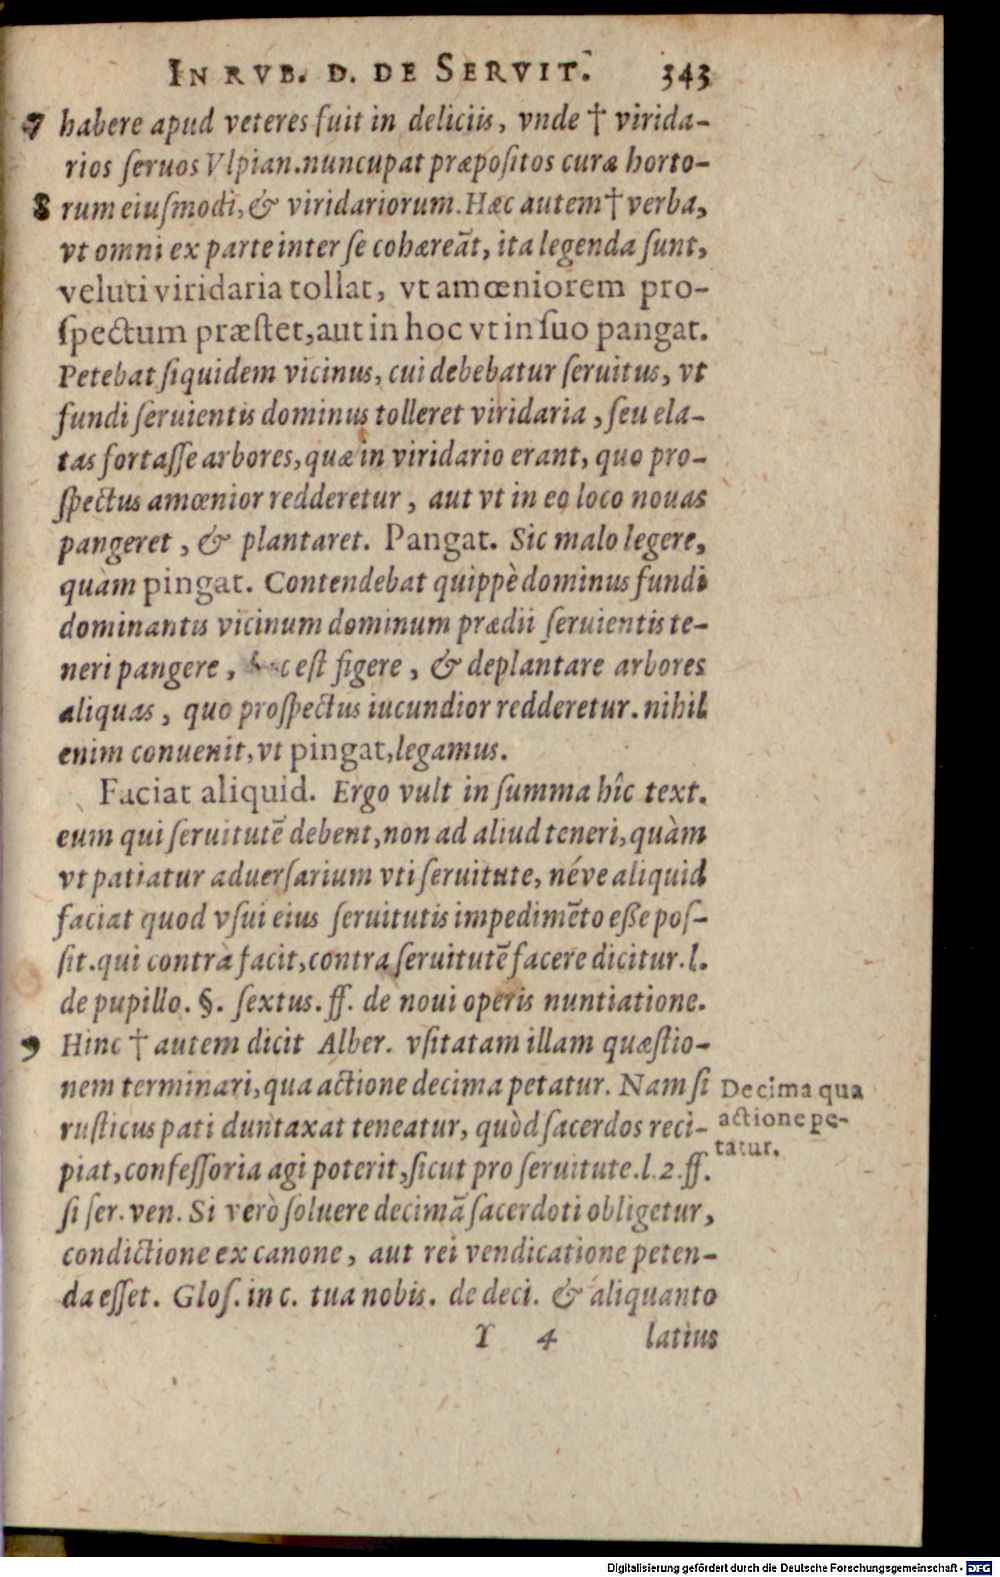 IN RVB. D. DE SERVIT. 343
7 habere apud veteres fuit in deliciis, vnde † virida-
rios ſeruos Vlpian. nuncupat præpoſitos curæ horto-
8 rum eiuſmodi, & viridariorum. Hæc autem † verba,
vt omni ex parte inter ſe cohæreāt, ita legenda ſunt,
veluti viridaria tollat, vt amœniorem pro-
ſpectum præſtet, aut in hoc vt in ſuo pangat.
Petebat ſiquidem vicinus, cui debebatur ſeruitus, vt
fundi ſeruientis dominus tolleret viridaria, ſeu ela-
tas fortaſſe arbores, quæ in viridario erant, quo pro-
ſpectus amœnior redderetur, aut vt in eo loco nouas
pangeret, & plantaret. Pangat. Sic malo legere,
quàm pingat. Contendebat quippè dominus fundi
dominantis vicinum dominum prædii ſeruientis te-
neri pangere, eſt figere, & deplantare arbores
aliquas, quo proſpectus iucundior redderetur. nihil
enim conuenit, vt pingat, legamus.
Faciat aliquid. Ergo vult in ſumma hîc text.
eum qui ſeruitutē debent, non ad aliud teneri, quàm
vt patiatur aduerſarium vti ſeruitute, néve aliquid
faciat quod vſui eius ſeruitutis impedimēto eße poſ-
ſit. qui contrà facit, contra ſeruitutē facere dicitur. l.
de pupillo. §. ſextus. ff. de noui operis nuntiatione.
9 Hinc † autem dicit Alber. vſitatam illam quæſtio-
nem terminari, qua actione decima petatur. Nam ſi
ruſticus pati duntaxat teneatur, quòd ſacerdos reci-
piat, confeſſoria agi poterit, ſicut pro ſeruitute. l. 2. ff.
ſi ſer. ven. Si verò ſoluere decimā ſacerdoti obligetur,
condictione ex canone, aut rei vendicatione peten-
da eſſet. Gloſ. in c. tua nobis. de deci. & aliquanto
Y 4 latius
Decima qua
actione pe-
tatur.
Digitalisierung gefördert durch die Deutsche Forschungsgemeinschaft - DFG